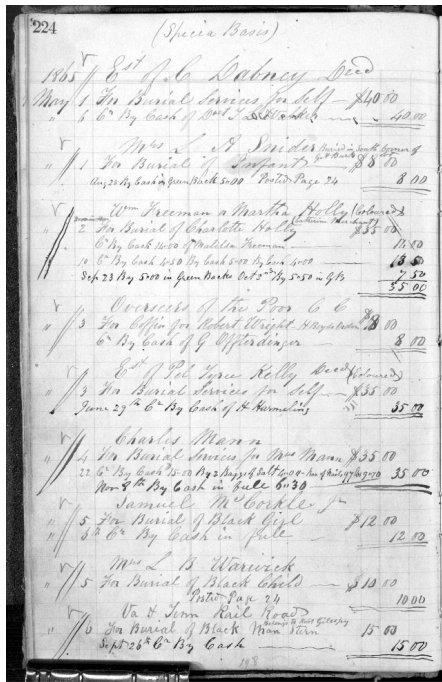 224
(Specia Basis)
1865 Est of C Dabney Decd
May 1 For Burial Services for Self $40 00
" 6 Cr By Cash of 40.00
Mrs L. A Snider Buried in South Corner of
" 1 For Burial of Infant $8 00
Aug 23 By Cash in Green Back 5.00 Posted Page 24 8 00
Wm Freeman a Martha Holly (Coloured)
2 For Burial of Charlotte Holly $35 00
Cr By Cash 14.00 of Matilda Freeman 14 00
10 Cr By Cash 4.50 By Cash 5.00 By Cash 4.00 13 50
Sep 23 By 5.00 in Green Backs Oct 2nd By 2.50 in GBs 7 50
35 00
Overseers of the Poor C C
" 3 For Coffin for Robert Wright $8 00
Cr By Cash of G Offterdinger 8 00
Est of Tyree Kelly Decd (Coloured)
" 3 For Burial Services for Self $35 00
June 29th Cr By Cash of H Harmeling 35 00
Charles Mann
" 4 For Burial Services for Mrs Mann $35 00
22 Cr By Cash 15.00 By 2 Baggs of Salt 35 00
Nov 9th By Cash in full 6.30
Samuel McCorkle Jr
" 5 For Burial of Black Girl $12 00
" 5th Cr By Cash in full 12 00
Mrs L B Warwick
" 5 For Burial of Black Child $10 00
Posted Page 24 10 00
Va & Tenn Rail Road
" 6 For Burial of Black Man 15 00
Sept 26th Cr By Cash 15 00